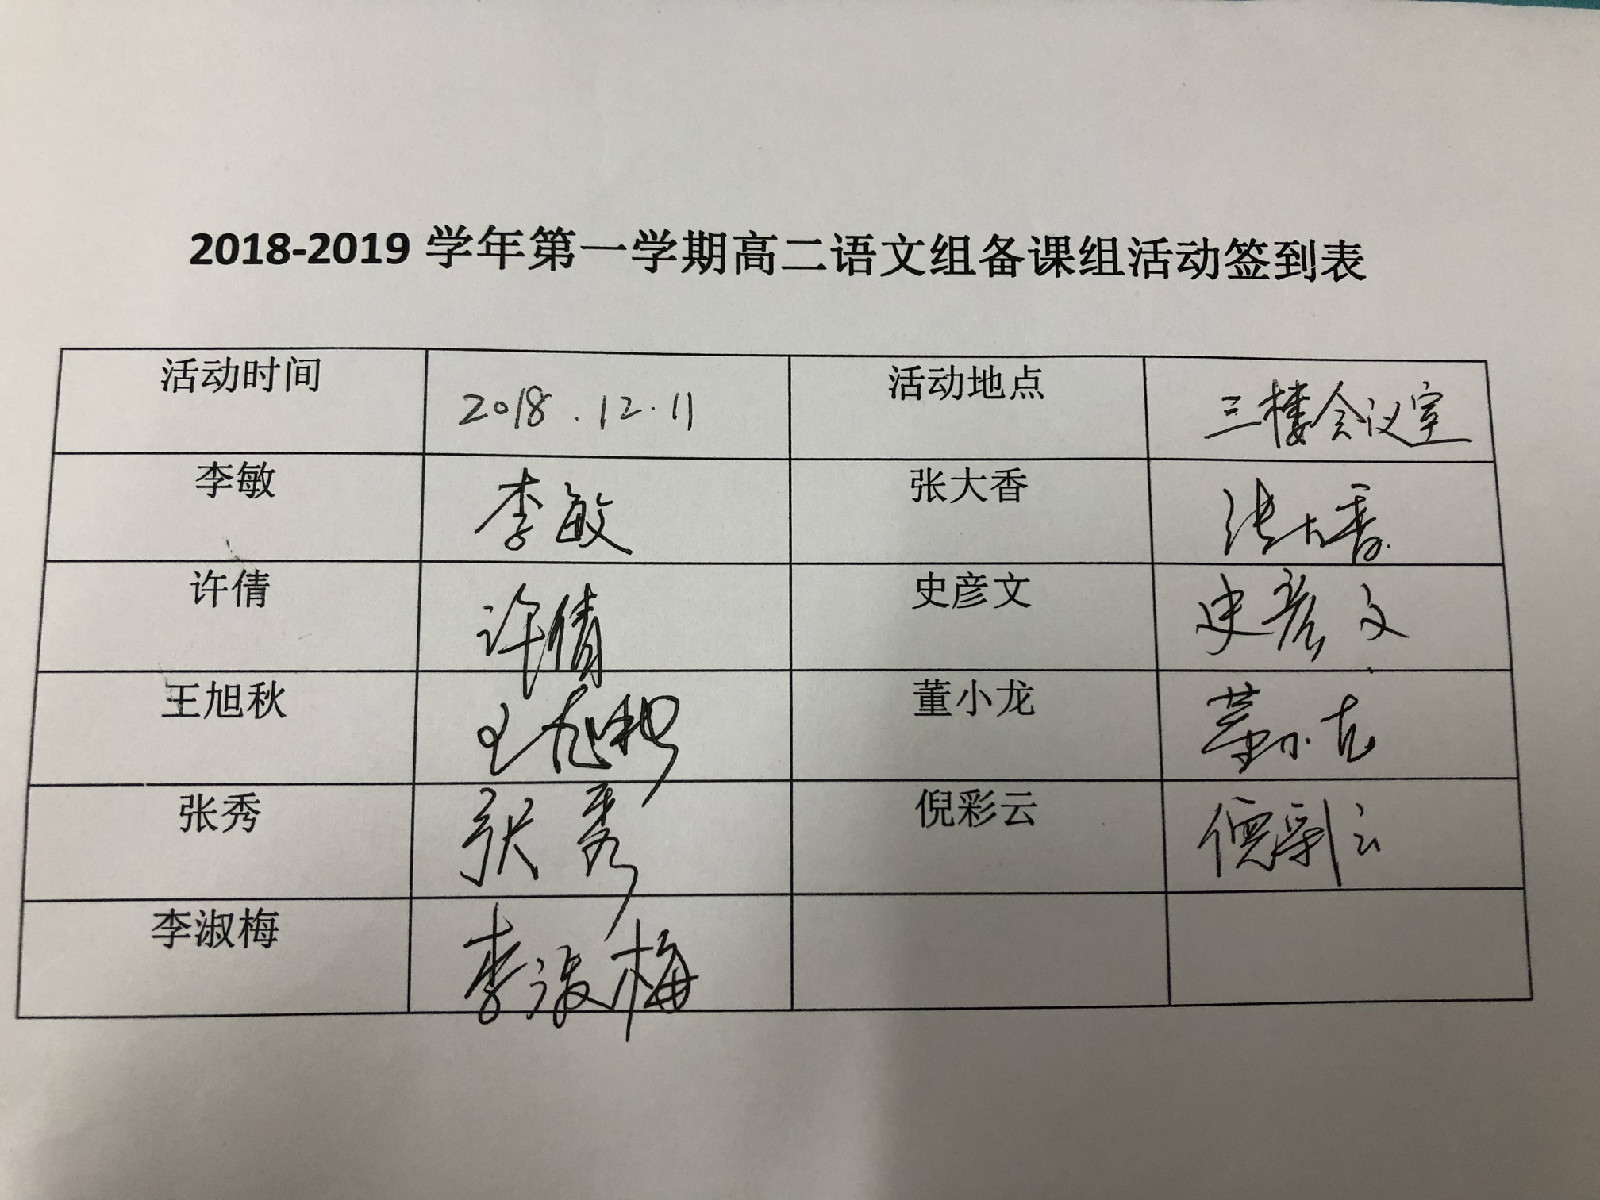 2018-2019 学年第一学期高二语文组备课组活动签到表
活动时间 2018.12.11 活动地点 三楼会议室
李敏 李敏 张大香 张大香
许倩 许倩 史彦文 史彦文
王旭秋 王旭秋 董小龙 董小龙
张秀 张秀 倪彩云 倪彩云
李淑梅 李淑梅